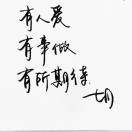 有人爱
有事做
有所期待
七月